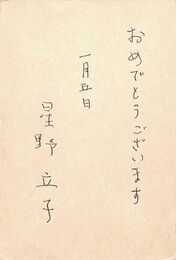 おめでとうございます
一月五日
星野立子